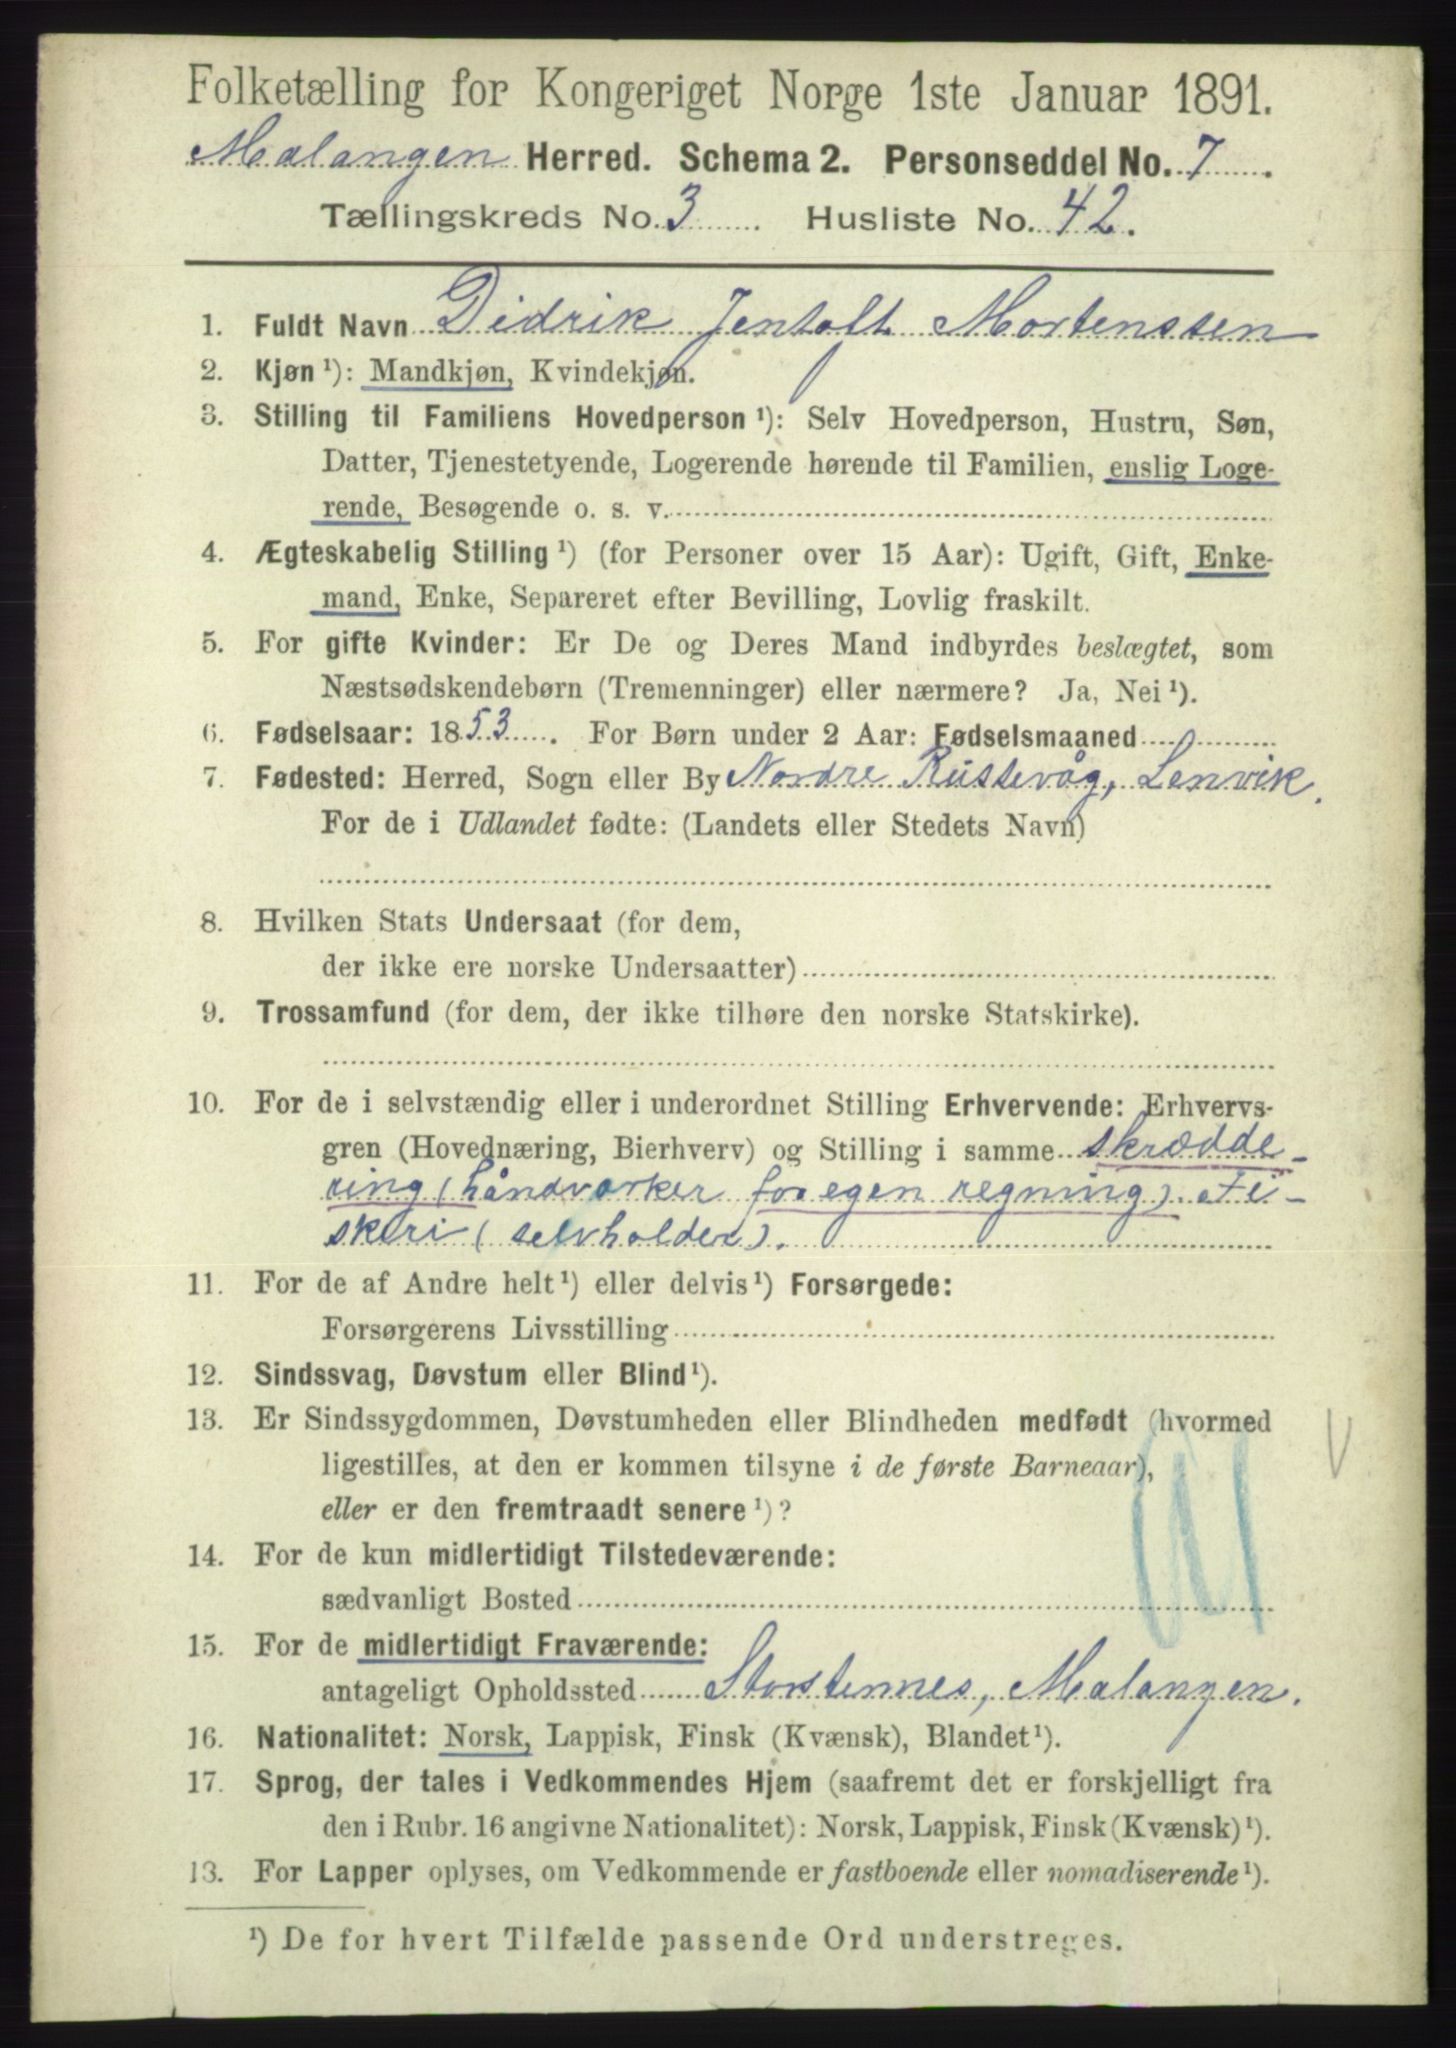 Folketælling for Kongeriget Norge 1ste Januar 1891.
Malangen Herred. Schema 2. Personseddel No. 7.
Tællingskreds No. 3 Husliste No. 42.
1. Fuldt Navn Didrik Jentoft Mortenssen
2. Kjøn ¹): Mandkjøn, Kvindekjøn.
3. Stilling til Familiens Hovedperson ¹): Selv Hovedperson, Hustru, Søn,
Datter, Tjenestetyende, Logerende hørende til Familien, enslig Loge-
rende, Besøgende o. s. v.
4. Ægteskabelig Stilling ¹) (for Personer over 15 Aar): Ugift, Gift, Enke-
mand, Enke, Separeret efter Bevilling, Lovlig fraskilt.
5. For gifte Kvinder: Er De og Deres Mand indbyrdes beslægtet, som
Næstsødskendebørn (Tremenninger) eller nærmere? Ja, Nei ¹).
6. Fødselsaar: 1853. For Børn under 2 Aar: Fødselsmaaned
7. Fødested: Herred, Sogn eller By Nordre Russevåg, Lenvik.
For de i Udlandet fødte: (Landets eller Stedets Navn)
8. Hvilken Stats Undersaat (for dem,
der ikke ere norske Undersaatter)
9. Trossamfund (for dem, der ikke tilhøre den norske Statskirke).
10. For de i selvstændig eller i underordnet Stilling Erhvervende: Erhvervs-
gren (Hovednæring, Bierhverv) og Stilling i samme skrædde-
ring (håndværker for egen regning). Fi-
skeri (selvholder).
11. For de af Andre helt ¹) eller delvis ¹) Forsørgede:
Forsørgerens Livsstilling
12. Sindssvag, Døvstum eller Blind ¹).
13. Er Sindssygdommen, Døvstumheden eller Blindheden medfødt (hvormed
ligestilles, at den er kommen tilsyne i de første Barneaar),
eller er den fremtraadt senere ¹)?
14. For de kun midlertidigt Tilstedeværende:
sædvanligt Bosted
15. For de midlertidigt Fraværende:
antageligt Opholdssted Storstennes, Malangen.
16. Nationalitet: Norsk, Lappisk, Finsk (Kvænsk), Blandet ¹).
17. Sprog, der tales i Vedkommendes Hjem (saafremt det er forskjelligt fra
den i Rubr. 16 angivne Nationalitet): Norsk, Lappisk, Finsk (Kvænsk) ¹).
13. For Lapper oplyses, om Vedkommende er fastboende eller nomadiserende ¹).
¹) De for hvert Tilfælde passende Ord understreges.